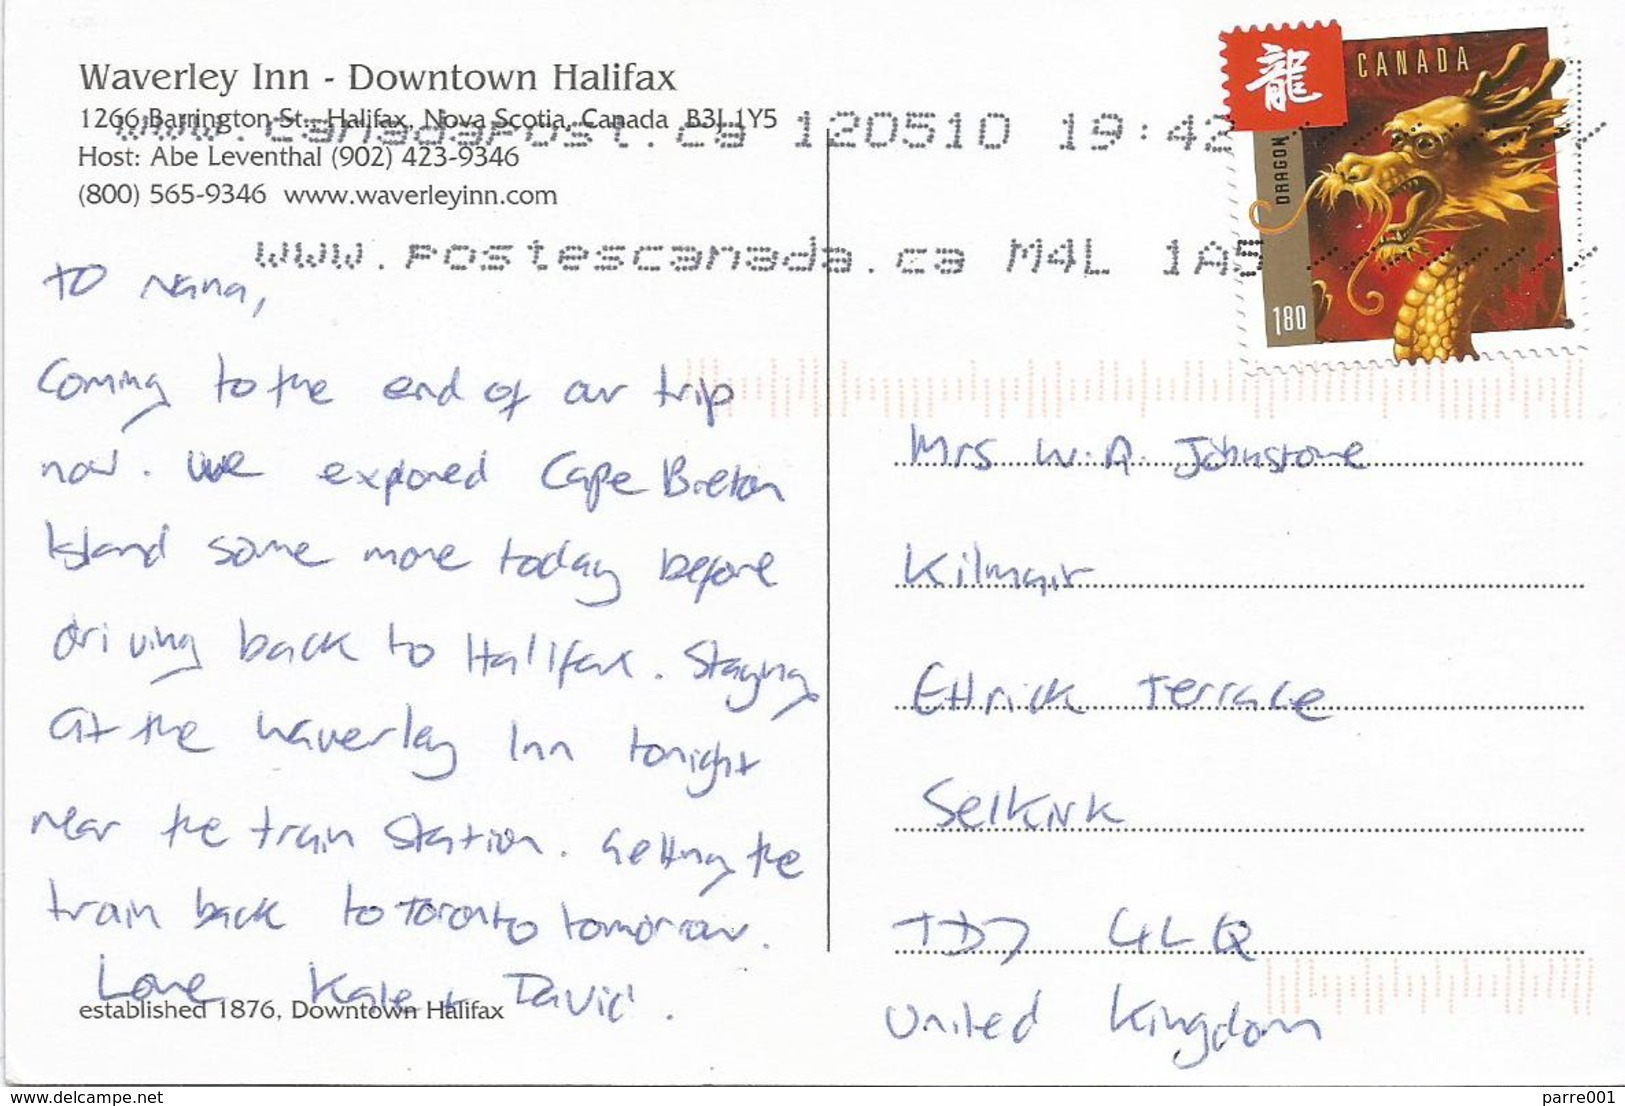 Waverley Inn - Downtown Halifax
1266 Barrington St., Halifax, Nova Scotia, Canada B3J 1Y5
Host: Abe Leventhal (902) 423-9346
(800) 565-9346 www.waverleyinn.com
www.canadapost.ca 120510 19:42
www.postescanada.ca M4L 1A5
龍
CANADA
DRAGON
180
To Nana,
Coming to the end of our trip
now. We explored Cape Breton
Island some more today before
driving back to Halifax. Staying
at the Waverley Inn tonight
near the train station. Getting the
train back to Toronto tomorrow.
Love Kate + David.
established 1876, Downtown Halifax
Mrs W.A. Johnstone
Kilmair
Ettrick Terrace
Selkirk
TD7 4LQ
United Kingdom
www.delcampe.net
parre001